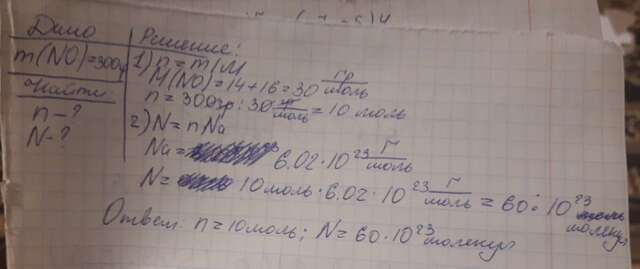 Дано
m(NO)=300гр
Найти
n-?
N-?
Решение:
1) n = m/M
M(NO)=14+16=30 гр/моль
n = 300гр : 30 гр/моль = 10 моль
2) N = nNa
Na = 6.02·10²³ Г/моль
N = 10моль·6.02·10²³ Г/моль = 60·10²³
молекул
Ответ n=10моль; N=60·10²³ молекул